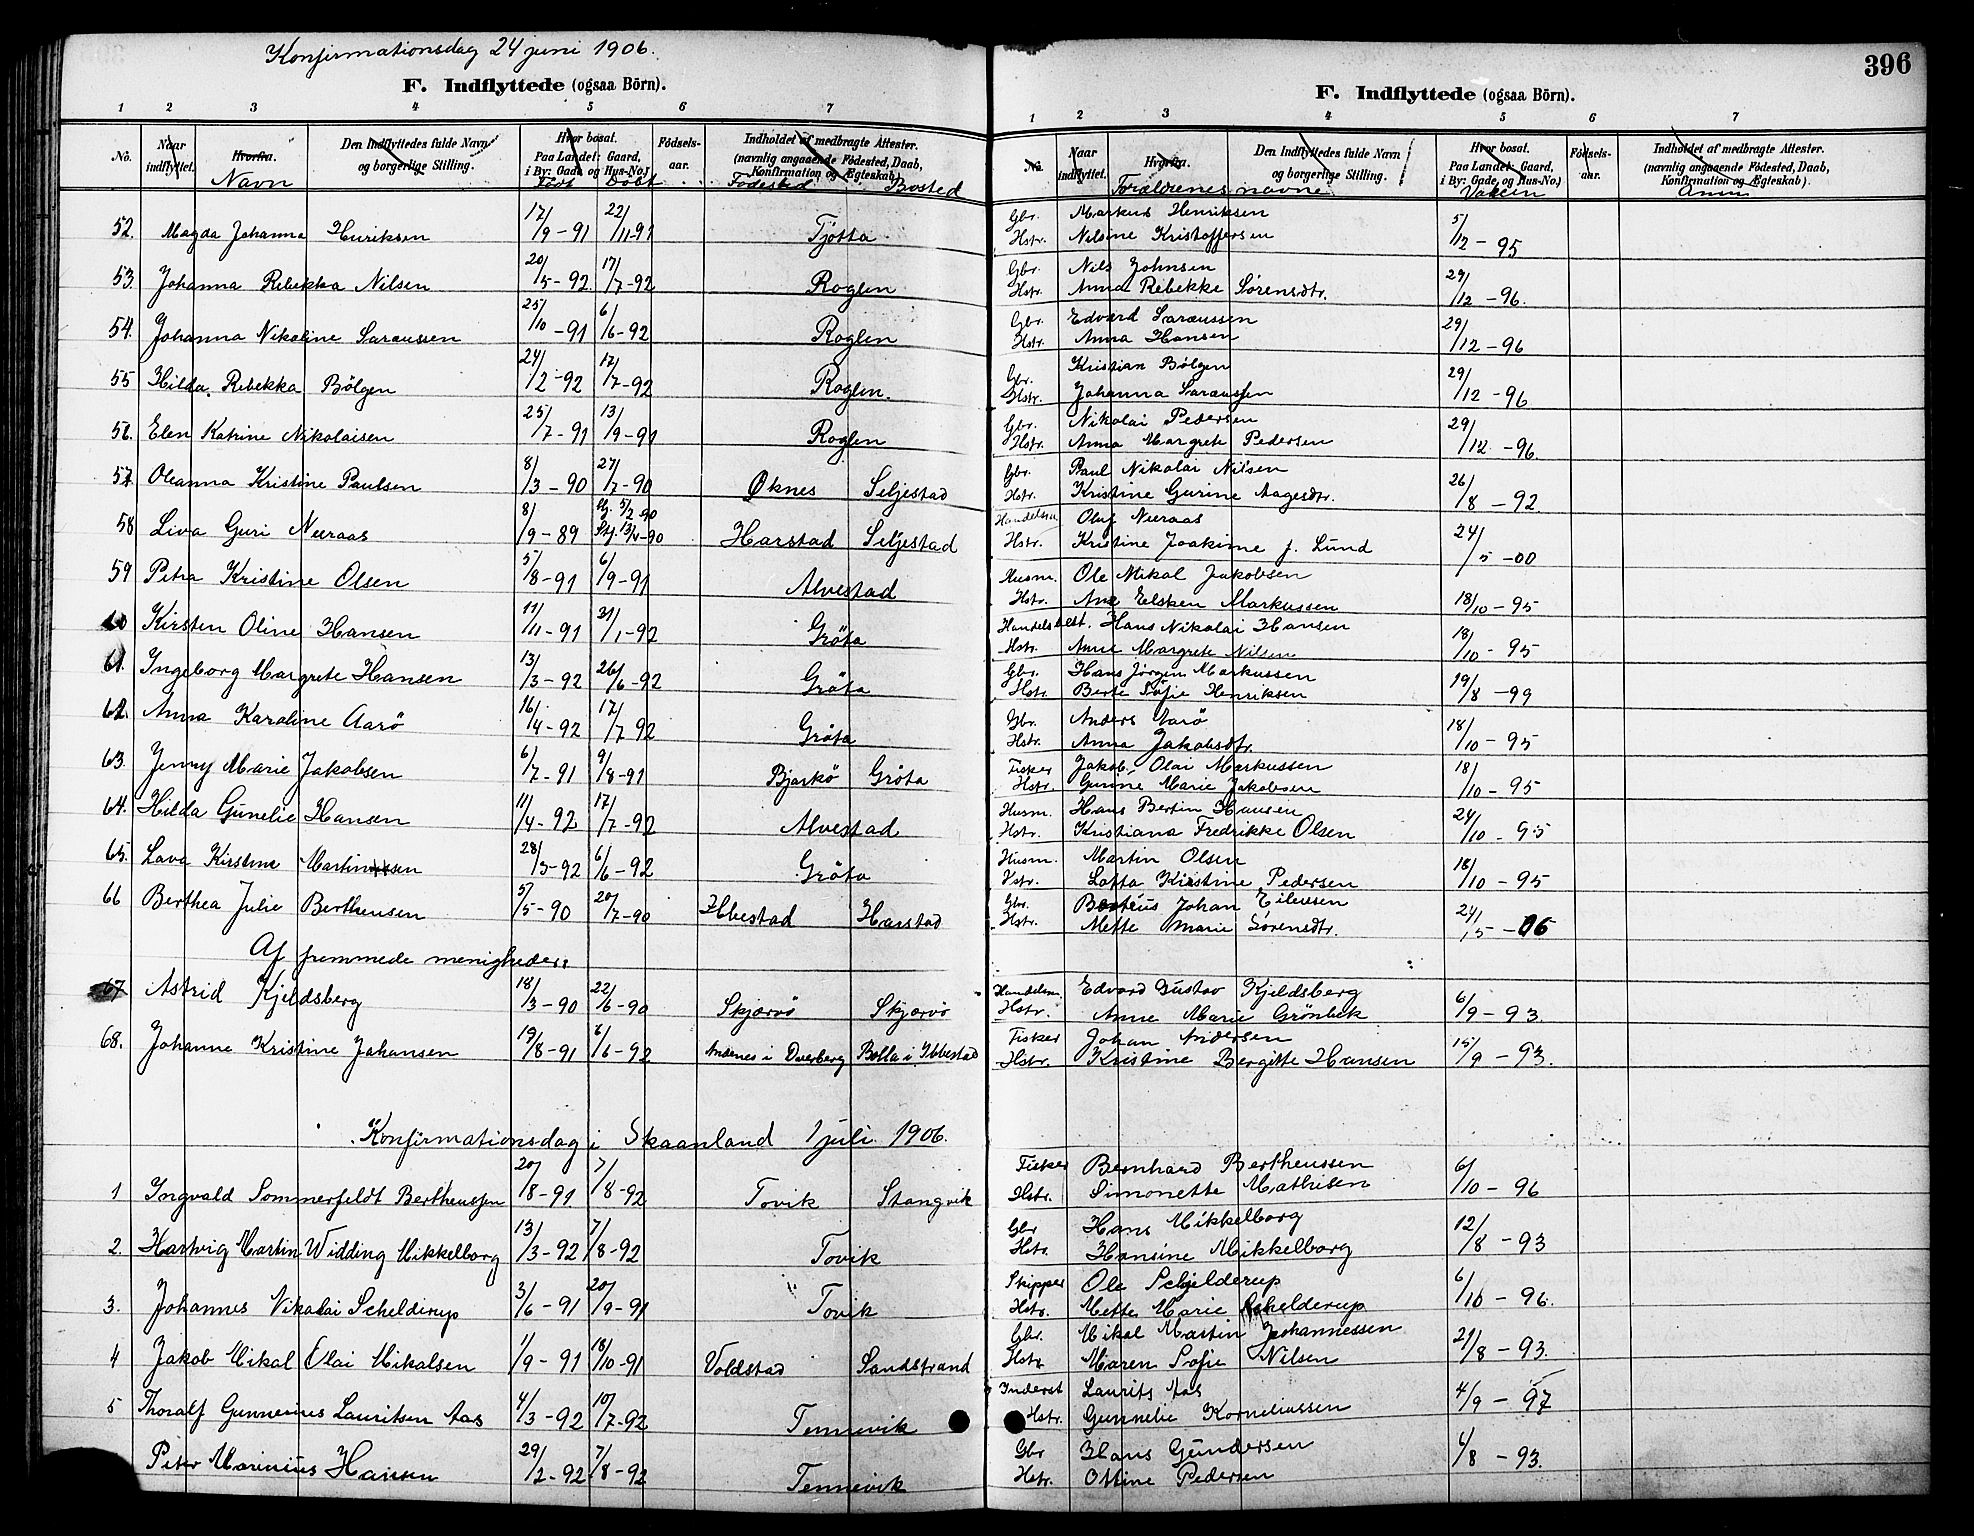 Konfirmationsdag 24 juni 1906.
396
F. Indflyttede (ogsaa Börn).
1 2 3 4 5 6 7
No. Naar indflyttet. Hvorfra. Den Indflyttedes fulde Navn og borgerlige Stilling. Hvor bosat. Paa Landet: Gaard, i By: Gade og Hus-No.) Födsels-aar. Indholdet af medbragte Attester. (navnlig angaaende Födested, Daab, Konfirmation og Ægteskab).
Navn Födt Döbt Födested Bosted
52. Magda Johanna Henriksen 17/9-91 22/11-91 Tjötta
53. Johanna Rebekka Nilsen 20/5-92 17/7-92 Roglen
54. Johanna Nikoline Saraussen 25/10-91 6/6-92 Roglen
55 Hilda Rebekka Bölgen 24/2-92 17/7-92 Roglen.
56. Elen Katrine Nikolaisen 25/7-91 13/9-91 Roglen
57. Oleanna Kristine Paulsen 8/3-90 27/7-90 Øknes Seljestad
58 Liva Guri Neeraas 8/9-89 Hj. 5/2-90 Stf. 13/4-90 Harstad Seljestad
59 Petra Kristine Olsen 5/8-91 6/9-91 Alvestad
60 Kirsten Oline Hansen 11/11-91 31/1-92 Gröta
61. Ingeborg Margrete Hansen 13/3-92 26/6-92 Gröta
62. Anna Karoline Aarö 16/4-92 17/7-92 Gröta
63. Jenny Marie Jakobsen 6/7-91 9/8-91 Bjarkö Gröta
64. Hilda Gunelie Hansen 11/4-92 17/7-92 Alvestad
65. Lava Kirstine Martinsen 28/5-92 6/6-92 Gröta
66 Berthea Julie Bertheusen 5/5-90 20/7-90 Ibbestad Harstad
Af fremmede menigheder:
67 Astrid Kjeldsberg 18/3-90 22/6-90 Skjærvö Skjærvö
68. Johanne Kristine Johansen 19/8-91 6/6-92 Andenes i Dverberg Bolla i Ibbestad
Konfirmationsdag i Skaanland 1 juli 1906.
1 Ingvald Sommerfeldt Bertheussen 20/8-91 7/8-92 Tovik Stangvik
2. Hartvig Martin Widding Mikkelborg 13/3-92 7/8-92 Tovik
3. Johannes Nikolai Schelderup 3/6-91 20/9-91 Tovik
4 Jakob Mikal Olai Mikalsen 1/9-91 18/10-91 Voldstad Sandstrand
5 Thoralf Gunnerius Lauritsen Aas 4/3-92 10/7-92 Tennevik
Peter Marinius Hansen 29/2-92 7/8-92 Tennevik
F. Indflyttede (ogsaa Börn).
1 2 3 4 5 6 7
No. Naar indflyttet. Hvorfra. Den Indflyttedes fulde Navn og borgerlige Stilling. Hvor bosat. Paa Landet: Gaard, i By: Gade, og Hus-No.) Födsels-aar. Indholdet af medbragte Attester. (navnlig angaaende Födested, Daab, Konfirmation og Ægteskab).
Forældrenes navne Vaccin Anm
Gbr. Markus Henriksen
Hstr. Nilsine Kristoffersen 5/12-95
Gbr. Nils Johnsen
Hstr. Anna Rebekke Sörensdtr. 29/12-96.
Gbr. Edvard Saraussen
Hstr. Anna Hansen 29/12-96
Gbr. Kristian Bölgen
Hstr. Johanna Saraussen 29/12-96
Gbr. Nikolai Pedersen
Hstr. Anna Margrete Pedersen 29/12-96.
Gbr. Paul Nikolai Nilsen
Hstr. Kristine Gurine Aagesdtr. 26/8-92
Handelsm. Oluf Neeraas
Hstr. Kristine Joakime f. Lund 24/5-00
Husm. Ole Mikal Jakobsen
Hstr. Ane Elsken Markussen 18/10-95
Handelsbest. Hans Nikolai Hansen
Hstr. Anne Margrete Nilsen 18/10-95
Gbr. Hans Jörgen Markussen
Hstr. Berte Sofie Henriksen 19/8-99
Gbr. Anders Aarö
Hstr. Anna Jakobsdtr. 18/10-95
Fisker Jakob Olai Markussen
Hstr. Gurine Marie Jakobsen 18/10-95
Husm. Hans Bertin Hansen
Hstr. Kristiana Fredrikke Olsen 24/10-95
Husm. Martin Olsen
Hstr. Lotta Kirstine Pedersen 18/10-95
Gbr. Berteus Johan Eilevsen
Hstr. Mette Marie Sörensdtr. 24/5-06
Handelsm. Edvard Gustav Kjeldsberg
Hstr. Anne Marie Grönbek 6/9-93.
Fisker Johan Andersen
Hstr. Kristine Bergitte Hansen 15/9-93.
Fisker Bernhard Bertheussen
Hstr. Simonette Mathisen 6/10-96
Gbr Hans Mikkelborg
Hstr. Hansine Mikkelborg 12/8-93
Skipper Ole Schjelderup
Hstr. Mette Marie Schelderup 6/10-96.
Gbr. Mikal Martin Johannessen
Hstr Maren Sofie Nilsen 21/8-93.
Inderst Laurits Aas
Hstr. Gunnelie Korneliussen 4/9-97
Gbr Hans Gundersen
Hstr. Ottine Pedersen 6/8-93.